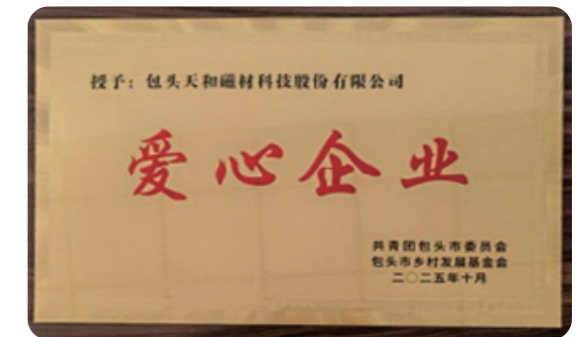 授予：包头天和磁材科技股份有限公司
爱心企业
共青团包头市委员会
包头市乡村发展基金会
二〇二五年十月